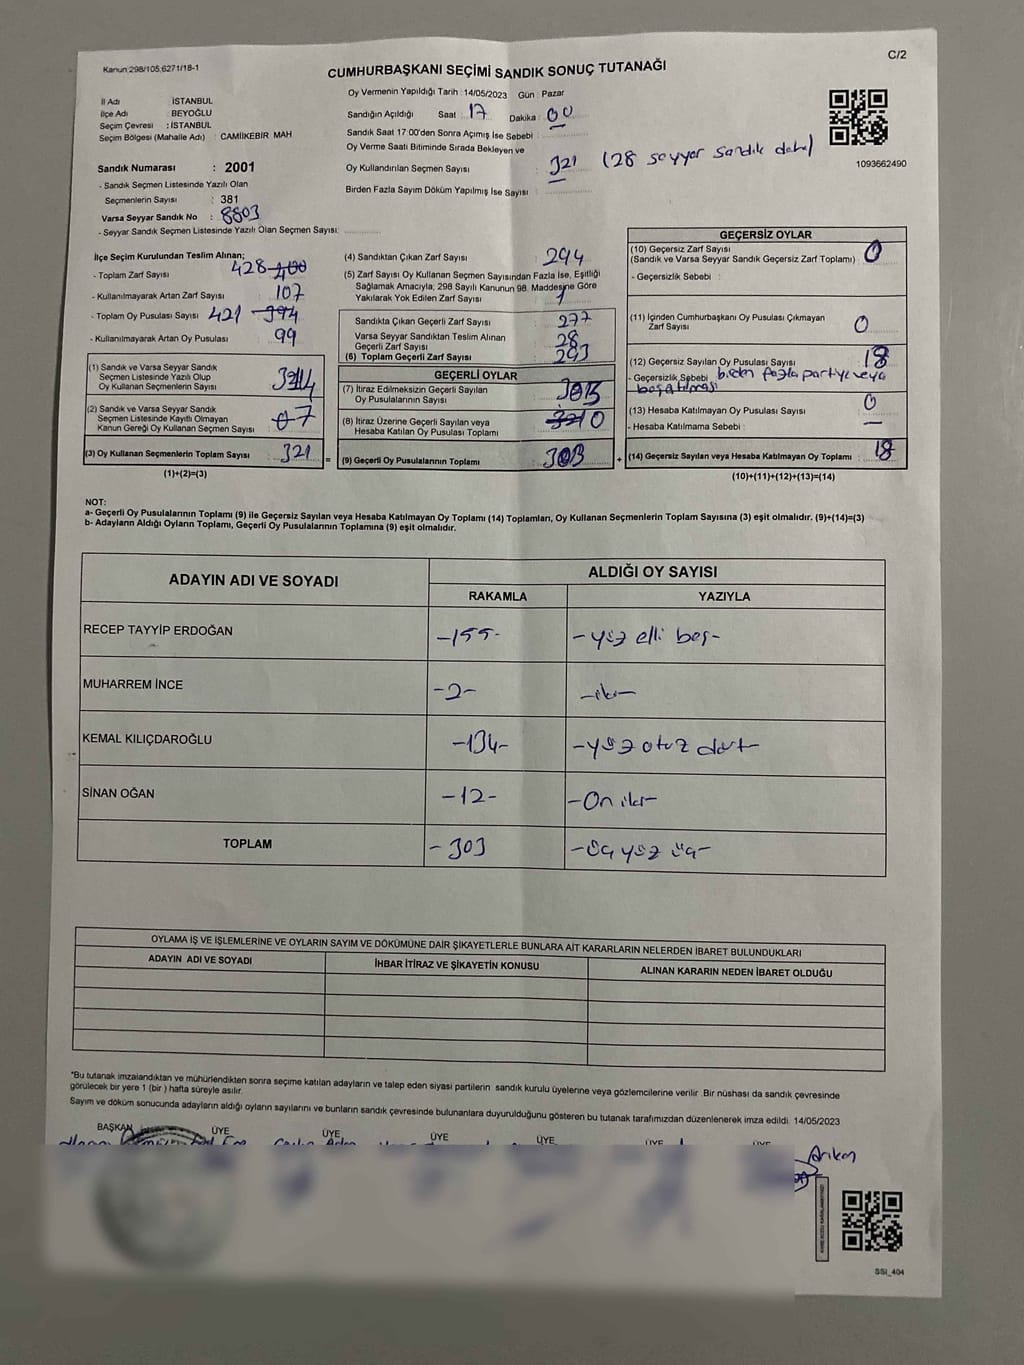 Kanun:298/105,6271/18-1
C/2
CUMHURBAŞKANI SEÇİMİ SANDIK SONUÇ TUTANAĞI
İl Adı : İSTANBUL
İlçe Adı : BEYOĞLU
Seçim Çevresi : İSTANBUL
Seçim Bölgesi (Mahalle Adı) : CAMİİKEBİR MAH
Sandık Numarası : 2001
- Sandık Seçmen Listesinde Yazılı Olan
Seçmenlerin Sayısı : 381
Varsa Seyyar Sandık No : 8803
- Seyyar Sandık Seçmen Listesinde Yazılı Olan Seçmen Sayısı:
Oy Vermenin Yapıldığı Tarih : 14/05/2023 Gün : Pazar
Sandığın Açıldığı Saat 17 Dakika : 00
Sandık Saat 17:00'den Sonra Açılmış İse Sebebi :
Oy Verme Saati Bitiminde Sırada Bekleyen ve
Oy Kullandırılan Seçmen Sayısı : 321 (28 seyyar sandık daha)
Birden Fazla Sayım Döküm Yapılmış İse Sayısı :
1093662490
İlçe Seçim Kurulundan Teslim Alınan;
- Toplam Zarf Sayısı 428 400
- Kullanılmayarak Artan Zarf Sayısı : 107
- Toplam Oy Pusulası Sayısı 421 394
- Kullanılmayarak Artan Oy Pusulası : 99
(1) Sandık ve Varsa Seyyar Sandık
Seçmen Listesinde Yazılı Olup
Oy Kullanan Seçmenlerin Sayısı : 314
(2) Sandık ve Varsa Seyyar Sandık
Seçmen Listesinde Kayıtlı Olmayan
Kanun Gereği Oy Kullanan Seçmen Sayısı : 07
(3) Oy Kullanan Seçmenlerin Toplam Sayısı : 321
(1)+(2)=(3)
(4) Sandıktan Çıkan Zarf Sayısı : 294
(5) Zarf Sayısı Oy Kullanan Seçmen Sayısından Fazla İse, Eşitliği
Sağlamak Amacıyla; 298 Sayılı Kanunun 98. Maddesine Göre
Yakılarak Yok Edilen Zarf Sayısı : 1
Sandıkta Çıkan Geçerli Zarf Sayısı : 277
Varsa Seyyar Sandıktan Teslim Alınan
Geçerli Zarf Sayısı : 28
(6) Toplam Geçerli Zarf Sayısı : 293
=
GEÇERLİ OYLAR
(7) İtiraz Edilmeksizin Geçerli Sayılan
Oy Pusulalarının Sayısı :
(8) İtiraz Üzerine Geçerli Sayılan veya
Hesaba Katılan Oy Pusulası Toplamı : 0
(9) Geçerli Oy Pusulalarının Toplamı : 303
+
GEÇERSİZ OYLAR
(10) Geçersiz Zarf Sayısı
(Sandık ve Varsa Seyyar Sandık Geçersiz Zarf Toplamı) : 0
- Geçersizlik Sebebi :
(11) İçinden Cumhurbaşkanı Oy Pusulası Çıkmayan
Zarf Sayısı : 0
(12) Geçersiz Sayılan Oy Pusulası Sayısı : 18
- Geçersizlik Sebebi : birden fazla partiye veya
boş atılması
(13) Hesaba Katılmayan Oy Pusulası Sayısı : 0
- Hesaba Katılmama Sebebi : —
(14) Geçersiz Sayılan veya Hesaba Katılmayan Oy Toplamı : 18
(10)+(11)+(12)+(13)=(14)
NOT:
a- Geçerli Oy Pusulalarının Toplamı (9) ile Geçersiz Sayılan veya Hesaba Katılmayan Oy Toplamı (14) Toplamları, Oy Kullanan Seçmenlerin Toplam Sayısına (3) eşit olmalıdır. (9)+(14)=(3)
b- Adayların Aldığı Oyların Toplamı, Geçerli Oy Pusulalarının Toplamına (9) eşit olmalıdır.
ADAYIN ADI VE SOYADI
ALDIĞI OY SAYISI
RAKAMLA YAZIYLA
RECEP TAYYİP ERDOĞAN -155- -yüz elli beş-
MUHARREM İNCE -2- -iki-
KEMAL KILIÇDAROĞLU -134- -yüz otuz dört-
SİNAN OĞAN -12- -On iki-
TOPLAM -303 -üç yüz üç-
OYLAMA İŞ VE İŞLEMLERİNE VE OYLARIN SAYIM VE DÖKÜMÜNE DAİR ŞİKAYETLERLE BUNLARA AİT KARARLARIN NELERDEN İBARET BULUNDUKLARI
ADAYIN ADI VE SOYADI İHBAR İTİRAZ VE ŞİKAYETİN KONUSU ALINAN KARARIN NEDEN İBARET OLDUĞU
*Bu tutanak imzalandıktan ve mühürlendikten sonra seçime katılan adayların ve talep eden siyasi partilerin sandık kurulu üyelerine veya gözlemcilerine verilir. Bir nüshası da sandık çevresinde
görülecek bir yere 1 (bir ) hafta süreyle asılır.
Sayım ve döküm sonucunda adayların aldığı oyların sayılarını ve bunların sandık çevresinde bulunanlara duyurulduğunu gösteren bu tutanak tarafımızdan düzenlenerek imza edildi. 14/05/2023
BAŞKAN ÜYE ÜYE ÜYE ÜYE ÜYE ÜYE
Arıkan
SSİ_404